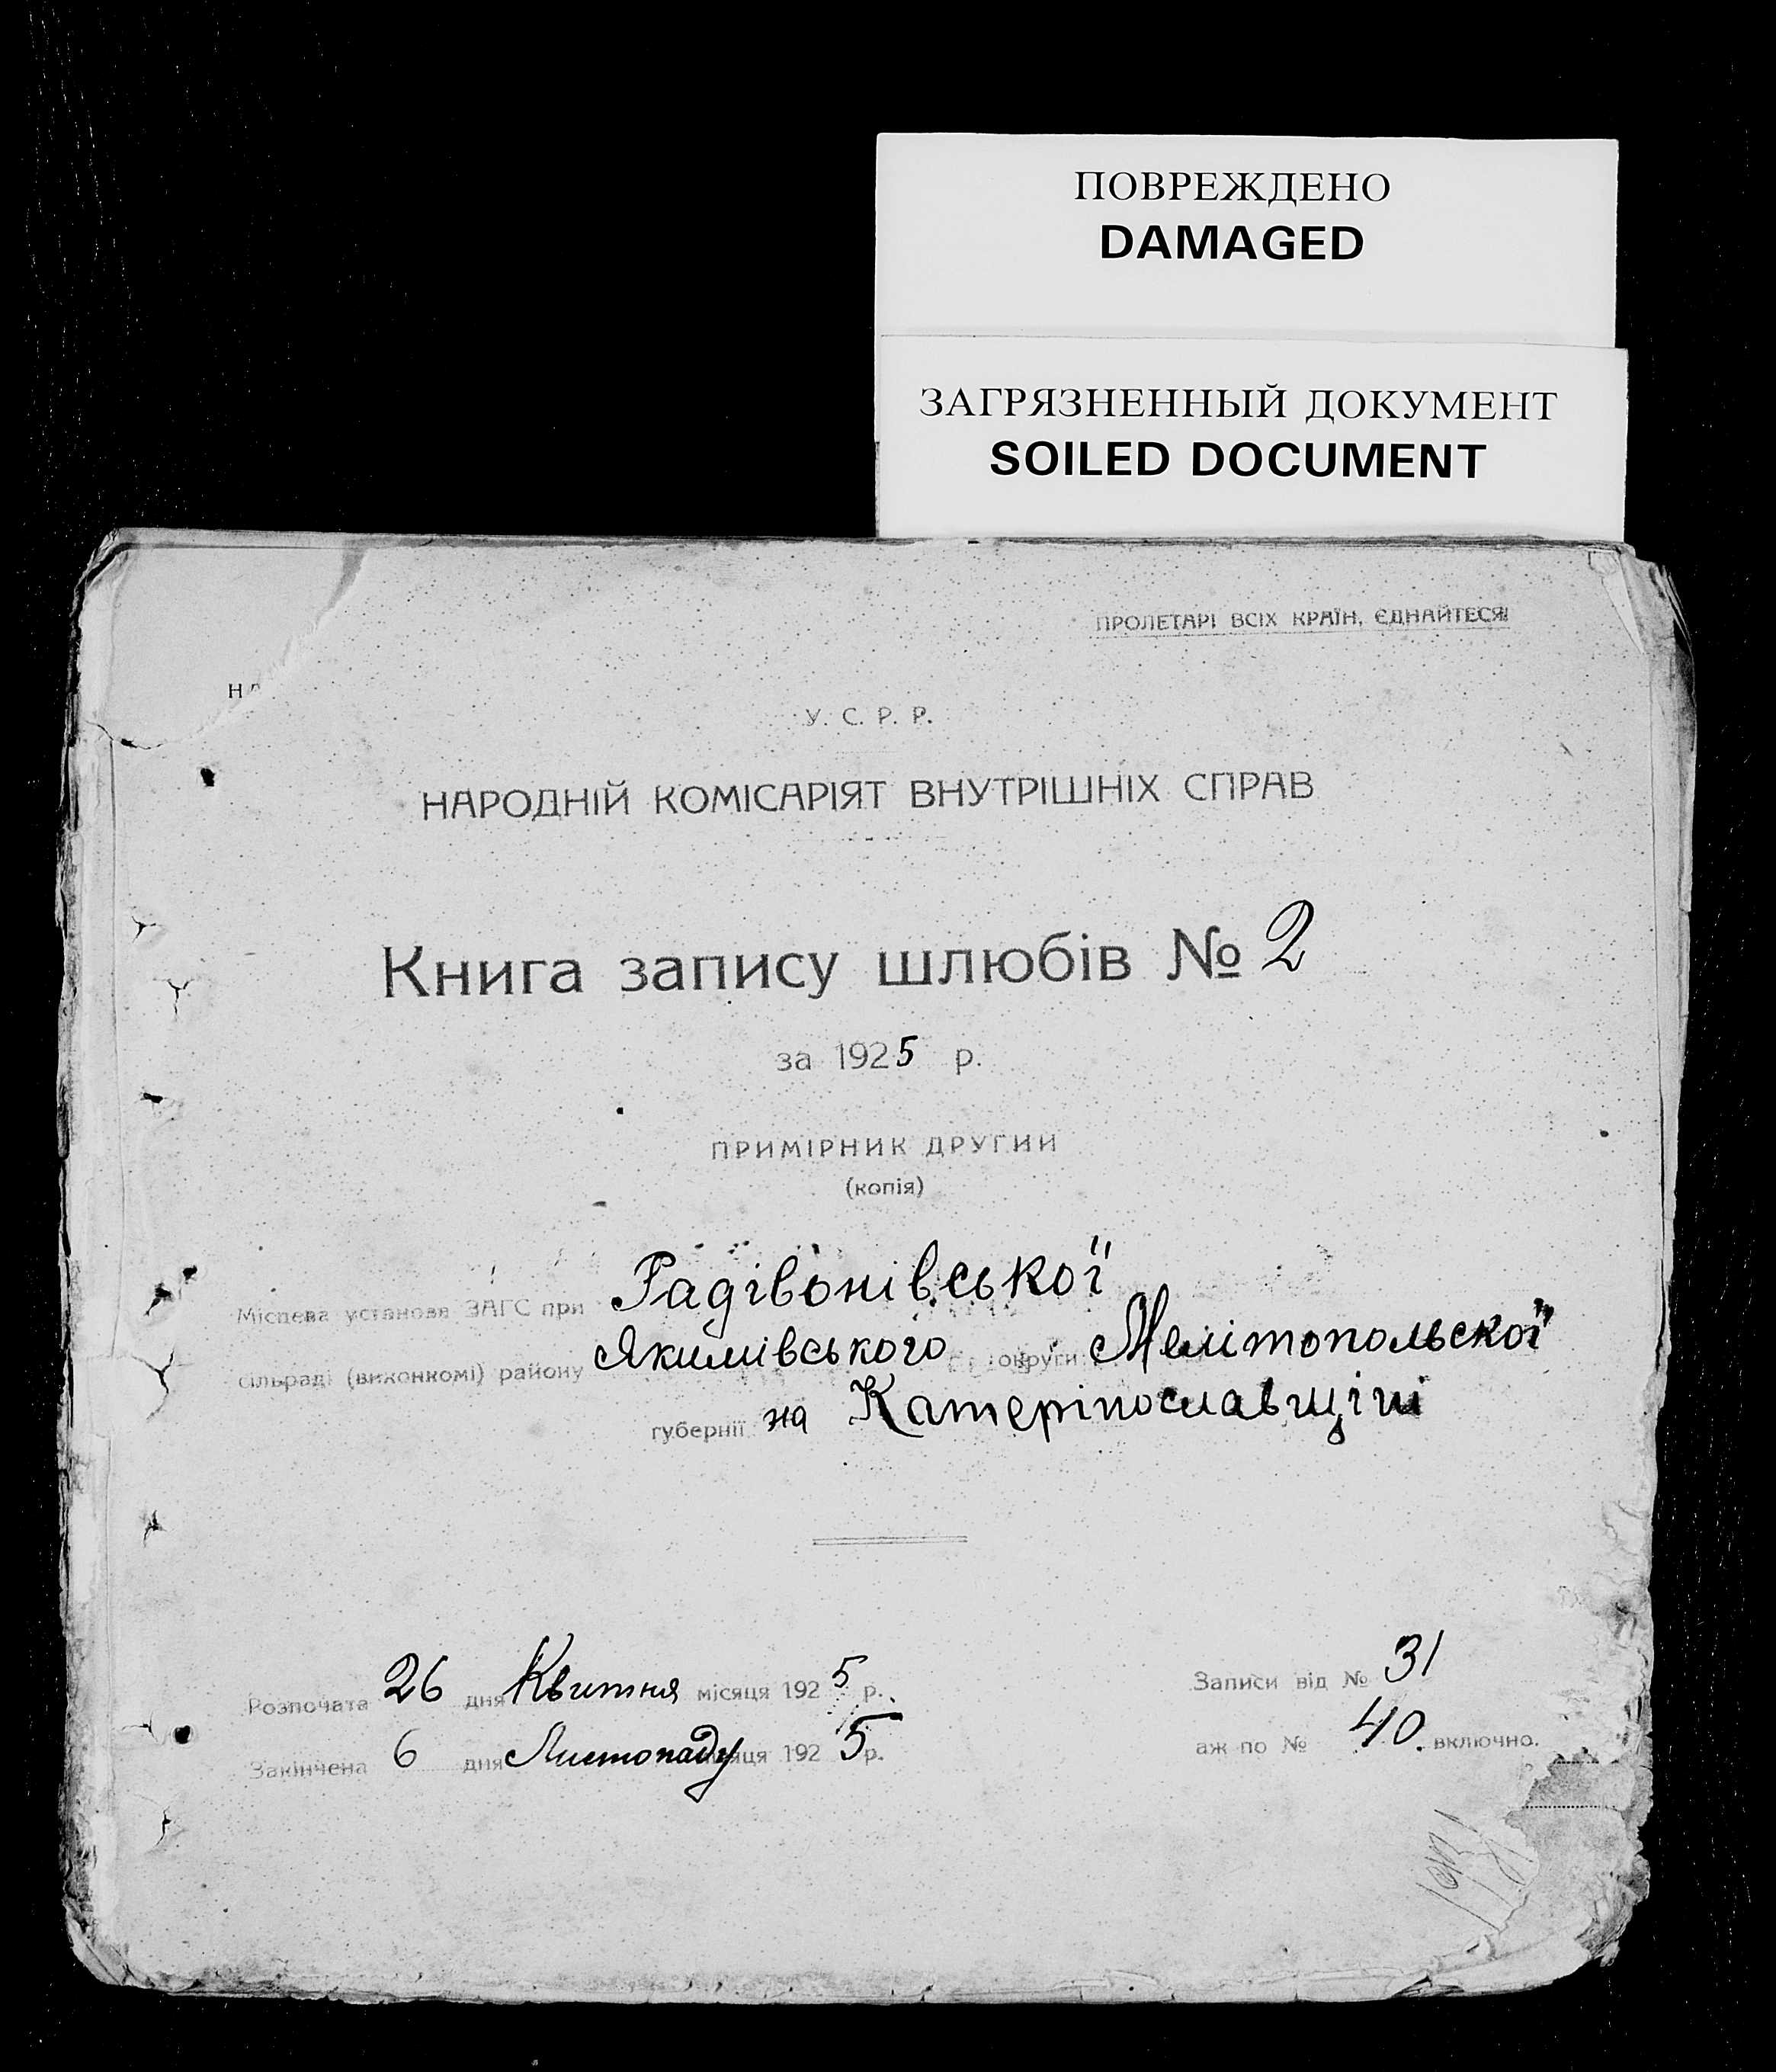 ПОВРЕЖДЕНО
DAMAGED
ЗАГРЯЗНЕННЫЙ ДОКУМЕНТ
SOILED DOCUMENT
ПРОЛЕТАРІ ВСІХ КРАЇН, ЄДНАЙТЕСЯ!
У. С. Р. Р.
НАРОДНІЙ КОМІСАРІЯТ ВНУТРІШНІХ СПРАВ
Книга запису шлюбів № 2
за 1925 р.
ПРИМІРНИК ДРУГИЙ
(копія)
Місцева установа ЗАГС при Радівонівської
сільраді (виконкомі) району Якимівського округи Мелітопольської
губернії на Катерінославщіні
Розпочата 26 дня Квитня місяця 1925 р. Записи від № 31
Закінчена 6 дня Листопаду місяця 1925 р. аж по № 40 включно.